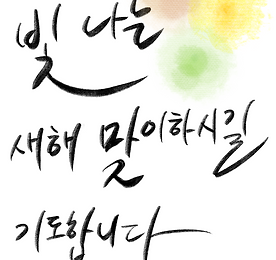 빛 나는
새해 맞이하시길
기도합니다